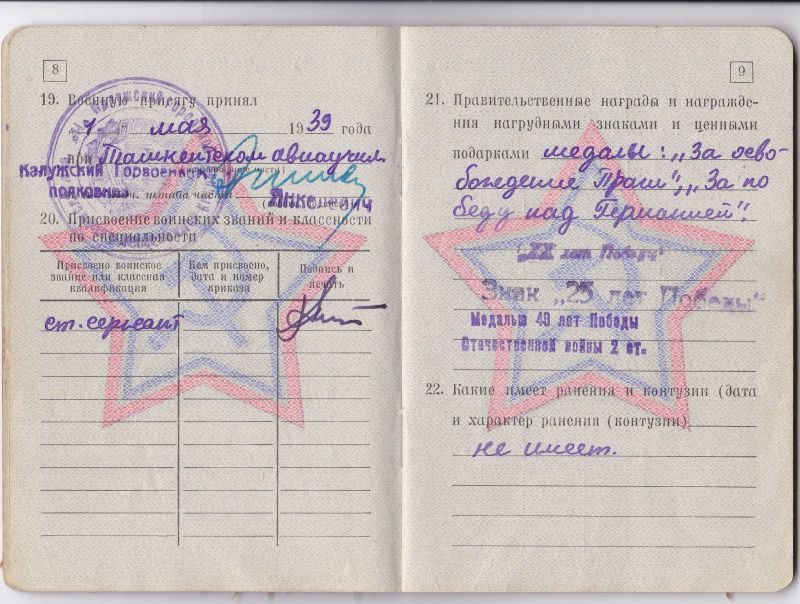 8
19. Военную присягу принял
1 мая 1939 года
при Ташкентском авиаучил.
Калужский Горвоенком
полковник
штаба части
Янкелевич
20. Присвоение воинских званий и классности
по специальности
Присвоено воинское
звание или классная
квалификация
Кем присвоено,
дата и номер
приказа
Подпись и
печать
ст. сержант
9
21. Правительственные награды и награжде-
ния нагрудными знаками и ценными
подарками медалы: „За осво-
бождение Праги", „За по
беду над Германией".
„XX лет Победы"
Знак „25 лет Победы"
Медалью 40 лет Победы
Отечественной войны 2 ст.
22. Какие имеет ранения и контузии (дата
и характер ранения (контузии)
не имеет.